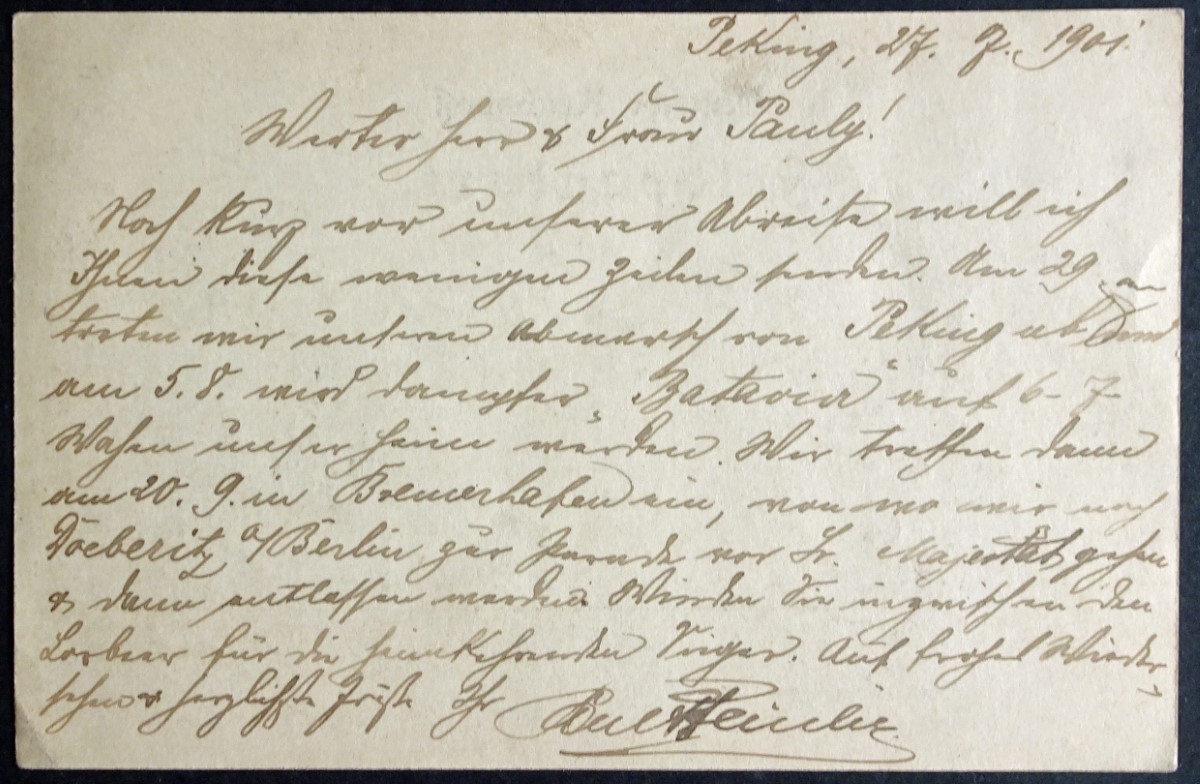 Peking, 27. 7. 1901.
Werter Herr & Frau Pauly!
Noch kurz vor unserer Abreise will ich
Ihnen diese wenigen Zeilen senden. Am 29.
treten wir unseren Abmarsch von Peking ab und
am 5.8. wird Dampfer „Batavia“ auf 6-7
Wochen unser Heim werden. Wir treffen dann
am 20. 9. in Bremerhafen ein, von wo wir nach
Döeberitz a/Berlin zur Parade vor Sr. Majestät gehen
& dann entlassen werden. Winden Sie inzwischen den
Lorbeer für die heimkehrenden Sieger. Auf frohes Wieder-
sehen & herzlichste Grüße Ihr